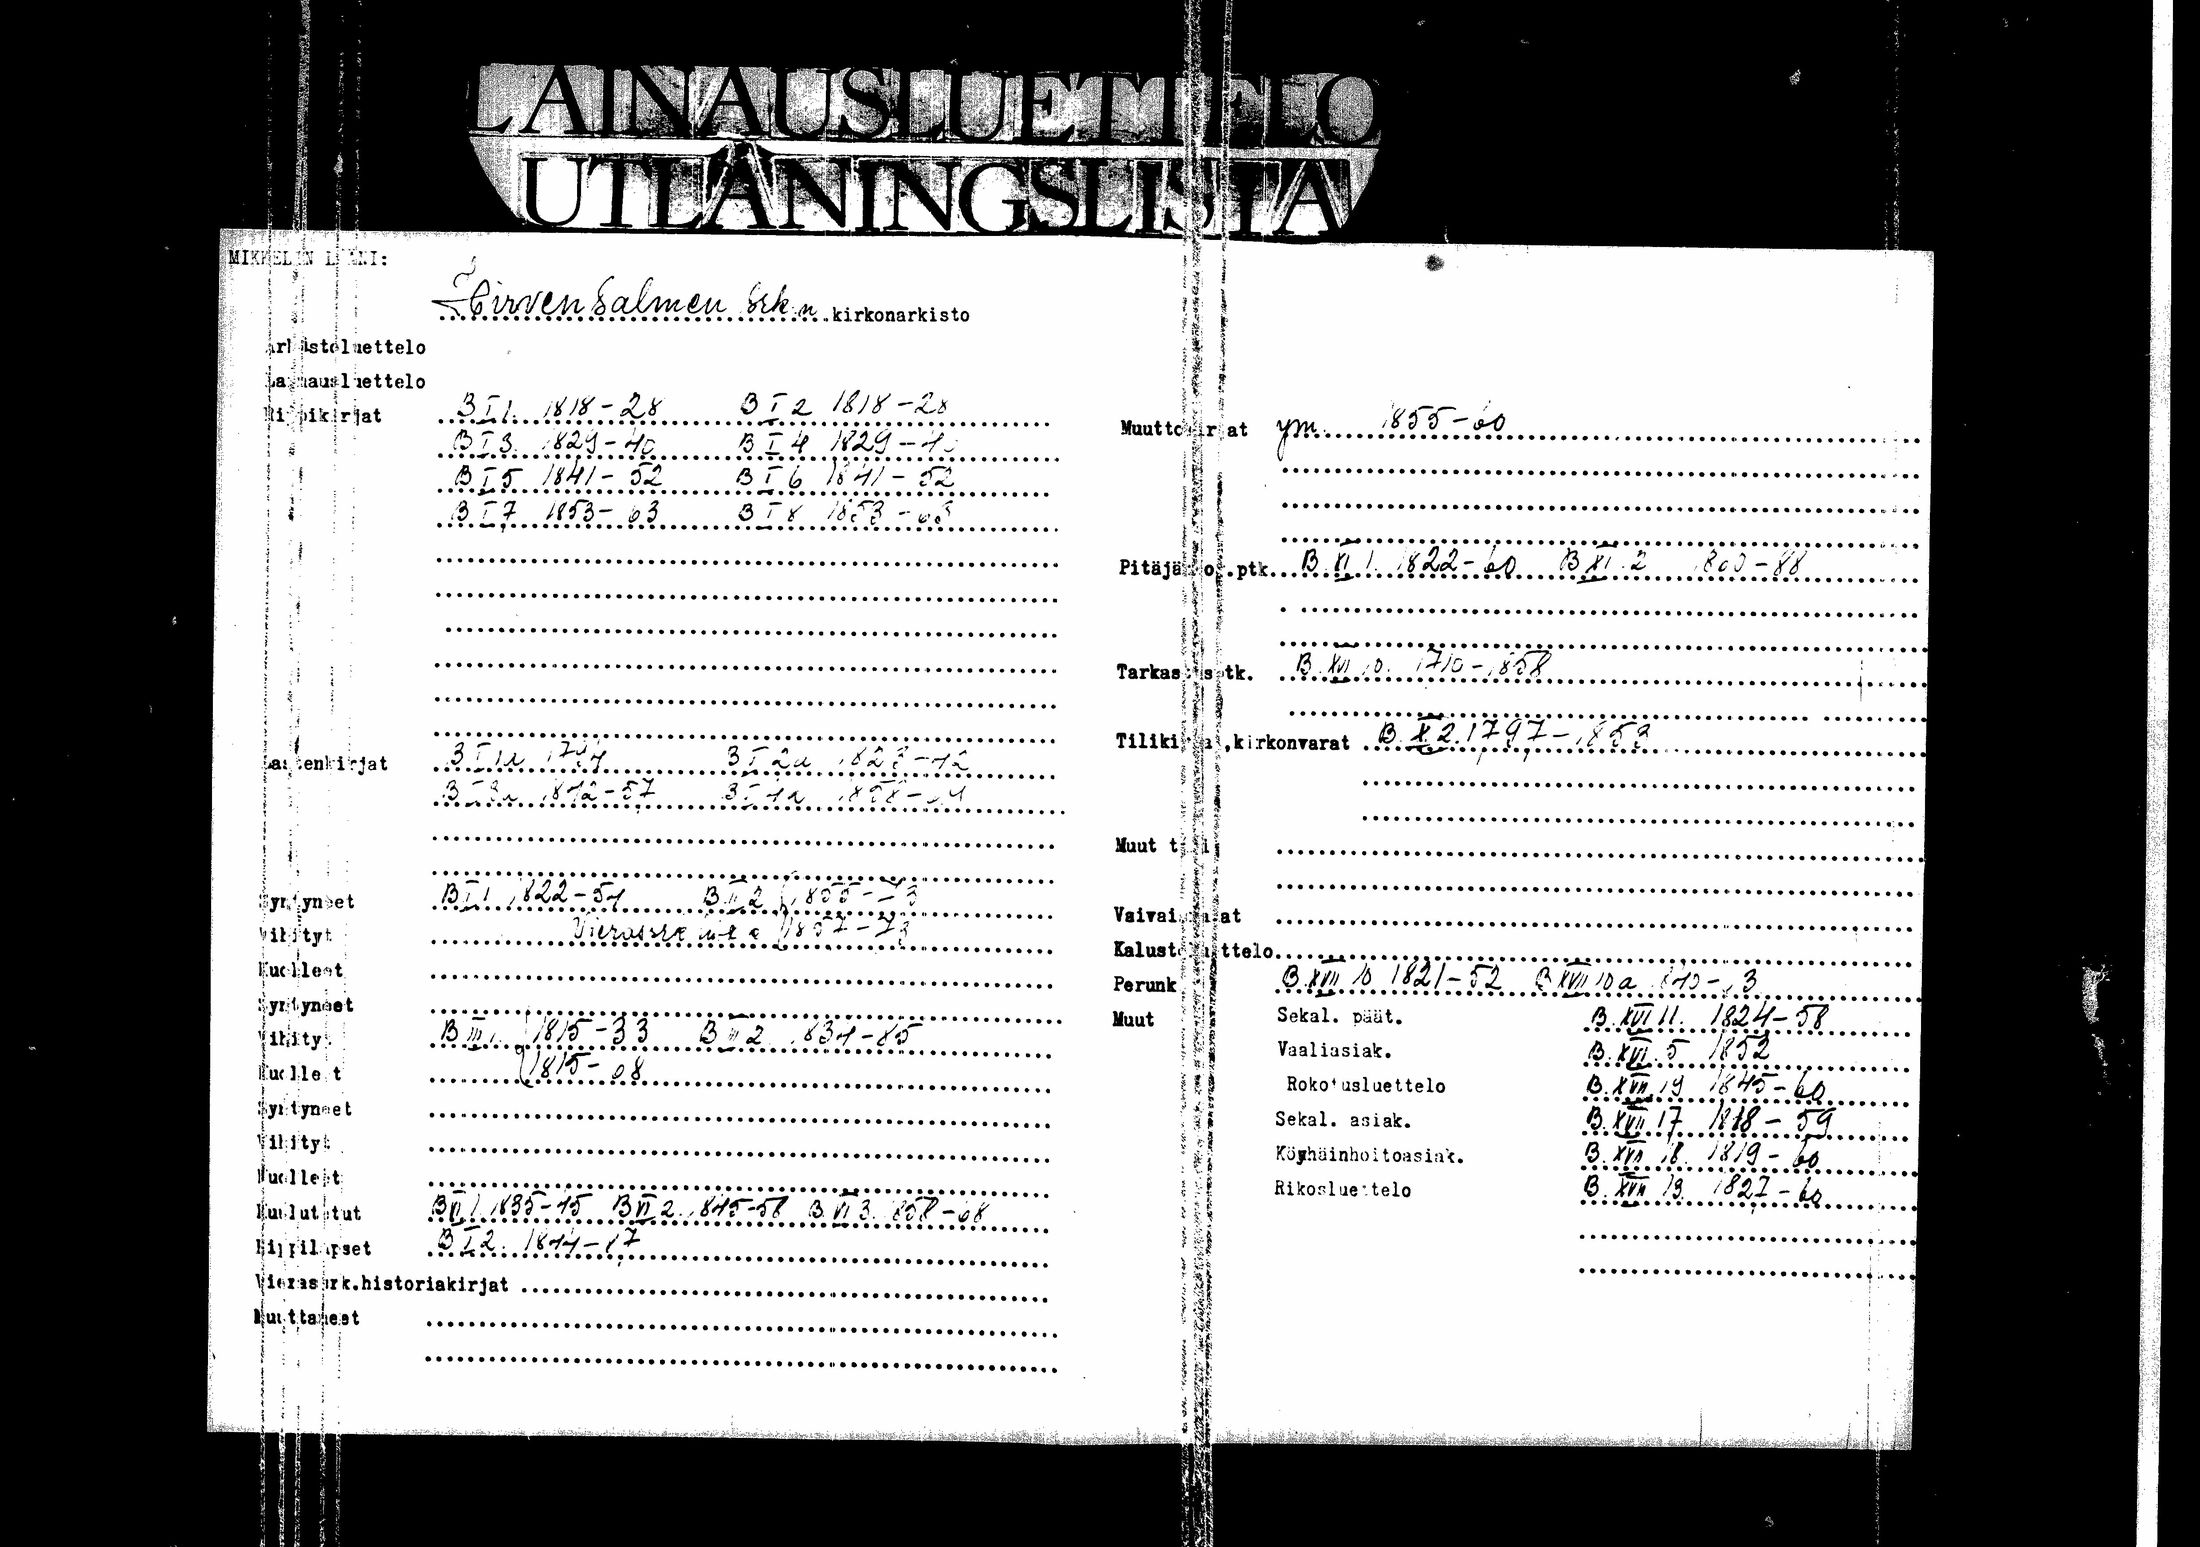 LAINAUSLUETTELO
UTLÅNINGSLISTA
MIKKELIN LÄÄNI:
Hirvensalmen srk:n kirkonarkisto
Arkistoluettelo
Lainausluettelo
Rippikirjat B I 1. 1818-28 B I 2 1818-28
B I 3. 1829-40 B I 4 1829-40
B I 5 1841-52 B I 6 1841-52
B I 7 1853-63 B I 8 1853-63
Lastenkirjat B I 1a B I 2a 1823-42
B I 3a 1842-57 B I 4a
Syntyneet B II 1. 1822-54 B II 2 1855-73
Vihityt 1857-73
Kuolleet
Syntyneet
Vihityt B III 1. 1815-33 B III 2 1834-85
Kuolleet 1815-68
Syntyneet
Vihityt
Kuolleet
Kuulutetut B VI 1. 1835-45 B VI 2. 1845-58 B VI 3. 1858-68
Rippilapset 
Vierassrk.historiakirjat
Muuttaneet
Muuttokirjat ym. 1855-60
Pitäjänkok.ptk. B XI 1. 1822-60 B XI 2
Tarkastusptk. B. XVI 10. 1710-1858
Tilikirjat,kirkonvarat B. X 2. 1797-1853
Muut tilit
Vaivaisvarat
Kalustoluettelo
Perunk. B. XVII 10 1821-52 B XVII 10a
Muut Sekal. päät. B. XVI 11. 1824-58
Vaaliasiak. B. XVI 5 1852
Rokotusluettelo B. XVII 19 1845-60
Sekal. asiak. B. XVII 17 1818-59
Köyhäinhoitoasiak. B. XVII 18. 1819-60
Rikosluettelo B. XVII 13. 1827-60